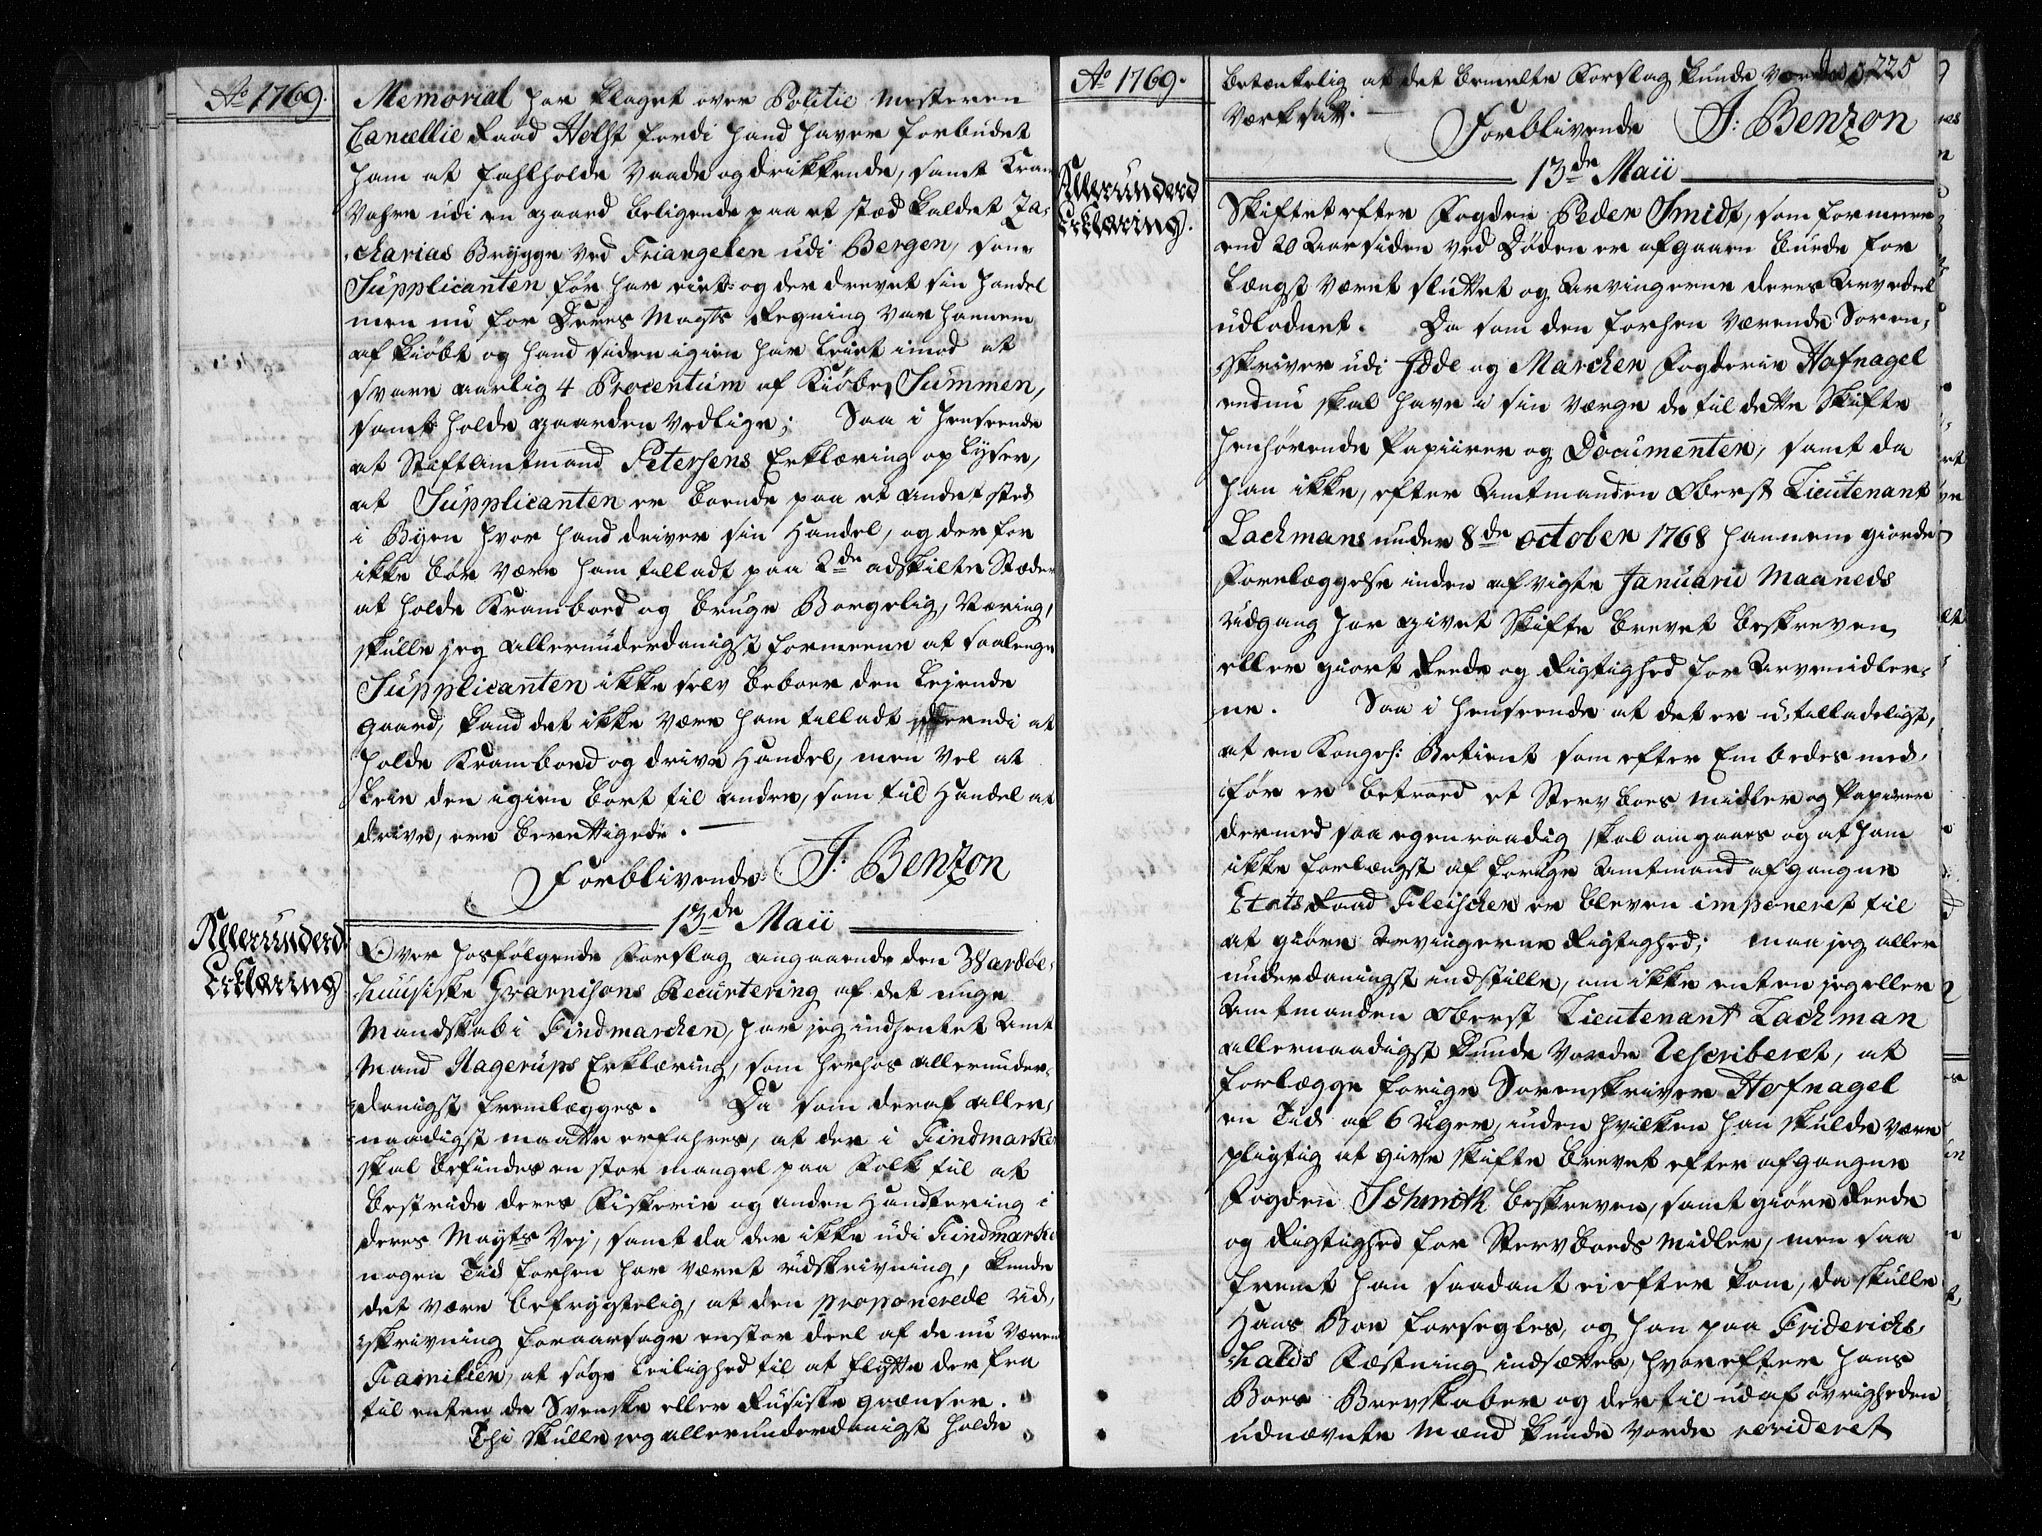 Ao 1769.
Memorial har klaget over Politie Mesteren
Cancellie Raad Holst fordi hand haver forbudet
ham at fahlholde Vaade og drikkende, samt Kram
Vahre udi en gaard beligende paa et stæd kaldet Za-
charias Brygge ved Triangelen udi Bergen, som
Supplicanten før har eiet og der drevet sin Handel
men nu for Deres Mayts Regning var hannem
af kiøbt og hand siden igien har leiet imod at
svare aarlig 4 Procentum af Kiøbe Summen,
samt holde gaarden vedlige; Saa i henseende
at Stiftamtmand Petersens Erklæring oplyser,
at Supplicanten er boende paa et andet sted
i Byen hvor hand driver sin Handel, og derfor
ikke bør være ham tilladt paa 2de adskilte Stæder
at holde Kramboed og bruge Borgelig Næring,
skulle jeg allerunderdanigst formeene at saalenge
Supplicanten ikke selv beboer den Lejende
gaard, kand det ikke være ham tilladt derudi at
holde Kramboed og drive Handel, men vel at
leie den igien bort til andre, som til Handel at
drive, ere berettigede.
Forblivende J: Benzon
13de Maii
Allerunderd
Erklæring
Over hosfølgende Forslag angaaende den Wardøe-
huusiske Guarnisons Recurtering af det unge
Mandskab i Findmarchen, har jeg indhentet Amt
Mand Hagerups Erklæring, som herhos allerunder-
danigst fremlægges. Da som deraf aller-
naadigst maatte erfahres, at der i Findmarken
skal befindes en stor mangel paa Folk til at
bestride deres Fiskerie og anden Handtering i
deres Mayts Vej, samt da der ikke udi Findmarken
nogen Tid forhen har været udskrivning, kunde
det være befrygtelig, at den proponerede ud-
skrivning foraarsage en stor deel af de nu værende
Familier, at søge leilighed til at flytte der fra
til enten de Svenske eller Rusiske grænser.
Thi skulle jeg allerunderdanigst holde
Ao 1769.
225
betænkelig at det bemelte Forslag kunde vorde
Værk sat.
Forblivende J: Benzon
13de Maii
Allerunderd
Erklæring.
Skiftet efter Fogden Peder Smidt, som for meere
end 20 Aar siden ved Døden er afgaaen burde for
Længst været sluttet og Arvingerne deres Arvedeel
udlodnet. Da som den forhen værende Soren-
skriver udi Idde og Marchen Fogderie Hofnagel
endnu skal have i sin værge de til dette Skifte
henhørende Papiirer og Documenter, samt da
han ikke, efter Amtmanden Oberst Lieutenant
Lachmans under 8de october 1768 hannem giorde
Forelæggelse inden afvigte Januarii Maaneds
udgang har givet Skifte brevet beskreven
eller giort Reede og Rigtighed for Arvemidler-
ne. Saa i henseende at det er u-tilladeligt,
at en Kongel: Betient som efter Embedes med-
før er betroed et Sterv boes midler og Papirer
dermed saa egenraadig skal omgaaes og at ham
ikke forlængst af forige Amtmand afgangne
Etats Raad Fleischer er bleven imponeret til
at giøre Arvingerne Rigtighed; maa jeg aller
underdaningst indstille, om ikke enten jeg eller
Amtmanden Oberst Lieutenant Lachman
allernaadigst kunde vorde Rescriberet, at
forlægge forige Sorenskriver Hofnagel
en Tid af 6 Uger, inden hvilken han skulde være
pligtig at give skifte brevet efter afgangne
Fogden Schmith beskreven, samt giøre Reede
og Rigtighed for Stervboeds Midler, men saa
fremt han saadant ei efter kom, da skulle
Hans Boe forsegles, og han paa Friderichs-
halds Fæstning indsættes, hvorefter hans
Boes Brevskaber og der til ud af øvrigheden
udnævnte Mænd kunde vorde revideret